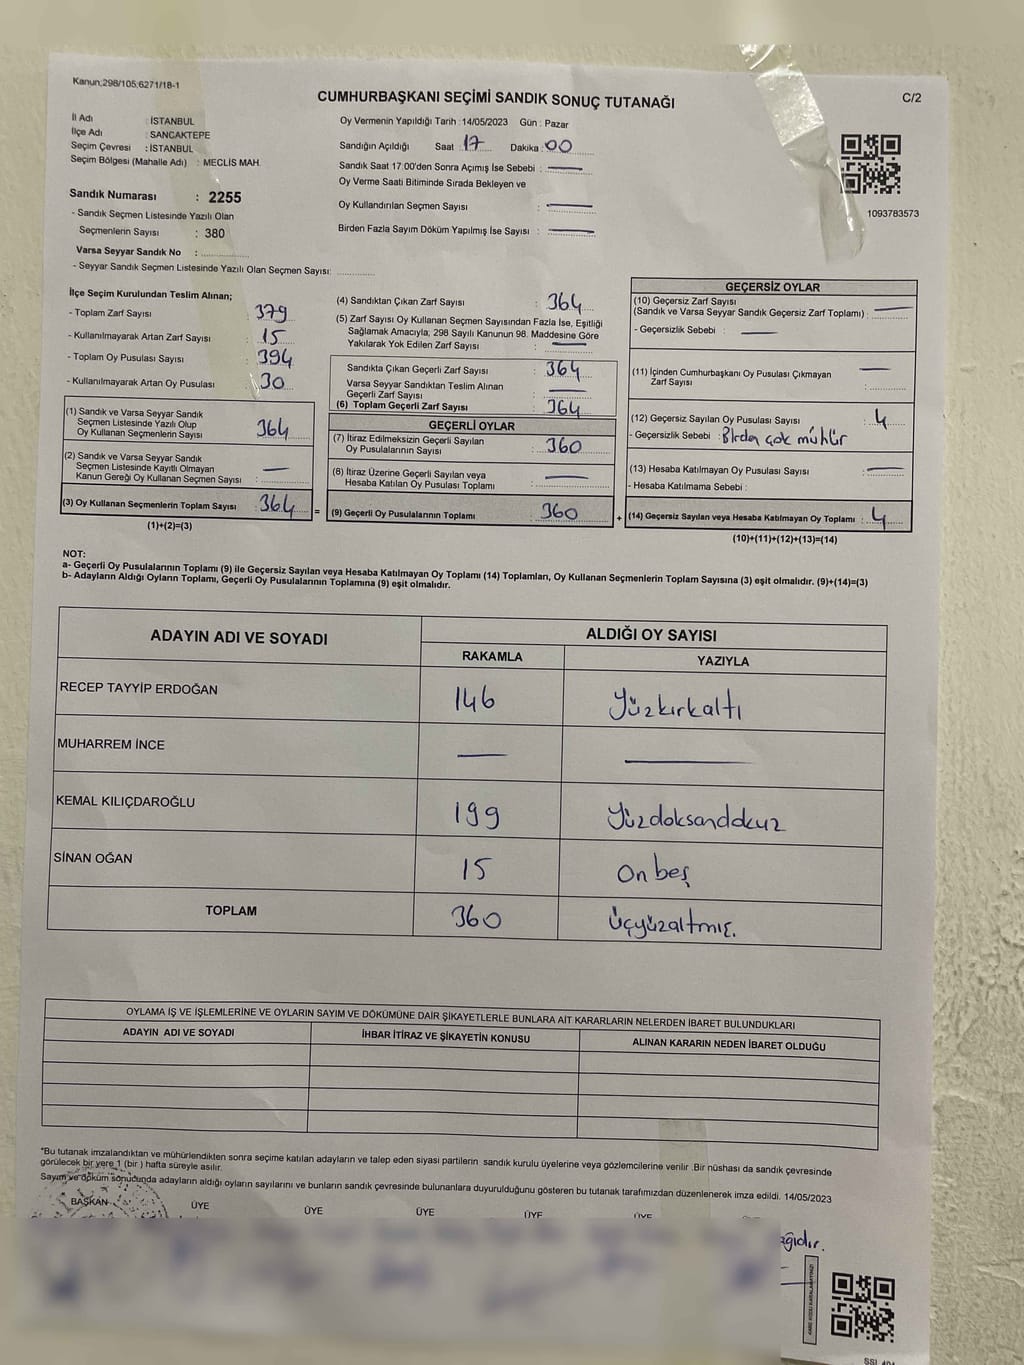 Kanun;298/105;6271/18-1
CUMHURBAŞKANI SEÇİMİ SANDIK SONUÇ TUTANAĞI
C/2
İl Adı : İSTANBUL
İlçe Adı : SANCAKTEPE
Seçim Çevresi : İSTANBUL
Seçim Bölgesi (Mahalle Adı) : MECLİS MAH.
Sandık Numarası : 2255
- Sandık Seçmen Listesinde Yazılı Olan
Seçmenlerin Sayısı : 380
Varsa Seyyar Sandık No :
- Seyyar Sandık Seçmen Listesinde Yazılı Olan Seçmen Sayısı:
Oy Vermenin Yapıldığı Tarih : 14/05/2023 Gün : Pazar
Sandığın Açıldığı Saat : 17 Dakika : 00
Sandık Saat 17:00'den Sonra Açımış İse Sebebi : —
Oy Verme Saati Bitiminde Sırada Bekleyen ve
Oy Kullandırılan Seçmen Sayısı : —
Birden Fazla Sayım Döküm Yapılmış İse Sayısı : —
1093783573
İlçe Seçim Kurulundan Teslim Alınan;
- Toplam Zarf Sayısı : 379
- Kullanılmayarak Artan Zarf Sayısı : 15
- Toplam Oy Pusulası Sayısı : 394
- Kullanılmayarak Artan Oy Pusulası : 30
(1) Sandık ve Varsa Seyyar Sandık
Seçmen Listesinde Yazılı Olup
Oy Kullanan Seçmenlerin Sayısı : 364
(2) Sandık ve Varsa Seyyar Sandık
Seçmen Listesinde Kayıtlı Olmayan
Kanun Gereği Oy Kullanan Seçmen Sayısı : —
(3) Oy Kullanan Seçmenlerin Toplam Sayısı : 364 =
(1)+(2)=(3)
(4) Sandıktan Çıkan Zarf Sayısı : 364
(5) Zarf Sayısı Oy Kullanan Seçmen Sayısından Fazla İse, Eşitliği
Sağlamak Amacıyla; 298 Sayılı Kanunun 98. Maddesine Göre
Yakılarak Yok Edilen Zarf Sayısı : —
Sandıkta Çıkan Geçerli Zarf Sayısı : 364
Varsa Seyyar Sandıktan Teslim Alınan
Geçerli Zarf Sayısı : —
(6) Toplam Geçerli Zarf Sayısı : 364
GEÇERLİ OYLAR
(7) İtiraz Edilmeksizin Geçerli Sayılan
Oy Pusulalarının Sayısı : 360
(8) İtiraz Üzerine Geçerli Sayılan veya
Hesaba Katılan Oy Pusulası Toplamı : —
(9) Geçerli Oy Pusulalarının Toplamı : 360 +
GEÇERSİZ OYLAR
(10) Geçersiz Zarf Sayısı
(Sandık ve Varsa Seyyar Sandık Geçersiz Zarf Toplamı) : —
- Geçersizlik Sebebi : —
(11) İçinden Cumhurbaşkanı Oy Pusulası Çıkmayan
Zarf Sayısı : —
(12) Geçersiz Sayılan Oy Pusulası Sayısı : 4
- Geçersizlik Sebebi : Birden çok mühür
(13) Hesaba Katılmayan Oy Pusulası Sayısı : —
- Hesaba Katılmama Sebebi :
(14) Geçersiz Sayılan veya Hesaba Katılmayan Oy Toplamı : 4
(10)+(11)+(12)+(13)=(14)
NOT:
a- Geçerli Oy Pusulalarının Toplamı (9) ile Geçersiz Sayılan veya Hesaba Katılmayan Oy Toplamı (14) Toplamları, Oy Kullanan Seçmenlerin Toplam Sayısına (3) eşit olmalıdır. (9)+(14)=(3)
b- Adayların Aldığı Oyların Toplamı, Geçerli Oy Pusulalarının Toplamına (9) eşit olmalıdır.
ADAYIN ADI VE SOYADI ALDIĞI OY SAYISI
RAKAMLA YAZIYLA
RECEP TAYYİP ERDOĞAN 146 Yüzkırkaltı
MUHARREM İNCE — —
KEMAL KILIÇDAROĞLU 199 Yüzdoksandokuz
SİNAN OĞAN 15 On beş
TOPLAM 360 Üçyüzaltmış.
OYLAMA İŞ VE İŞLEMLERİNE VE OYLARIN SAYIM VE DÖKÜMÜNE DAİR ŞİKAYETLERLE BUNLARA AİT KARARLARIN NELERDEN İBARET BULUNDUKLARI
ADAYIN ADI VE SOYADI İHBAR İTİRAZ VE ŞİKAYETİN KONUSU ALINAN KARARIN NEDEN İBARET OLDUĞU
*Bu tutanak imzalandıktan ve mühürlendikten sonra seçime katılan adayların ve talep eden siyasi partilerin sandık kurulu üyelerine veya gözlemcilerine verilir .Bir nüshası da sandık çevresinde
görülecek bir yere 1 (bir ) hafta süreyle asılır.
Sayım ve döküm sonucunda adayların aldığı oyların sayılarını ve bunların sandık çevresinde bulunanlara duyurulduğunu gösteren bu tutanak tarafımızdan düzenlenerek imza edildi. 14/05/2023
BAŞKAN ÜYE ÜYE ÜYE ÜYE ÜYE